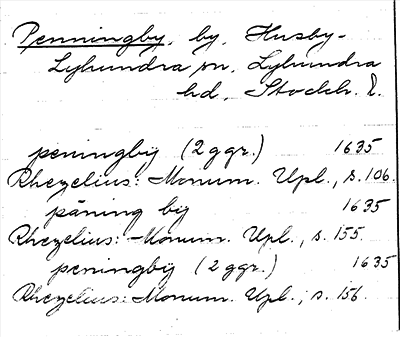 Penningby, by, Husby-
Lyhundra sn, Lyhundra
hd, Stockh. l.
peningbÿ (2 ggr.) 1635
Rhezelius: Monum. Upl., s. 106.
päning bÿ 1635
Rhezelius: Monum. Upl., s. 155.
peningbÿ (2 ggr.) 1635
Rhezelius: Monum. Upl., s. 156.